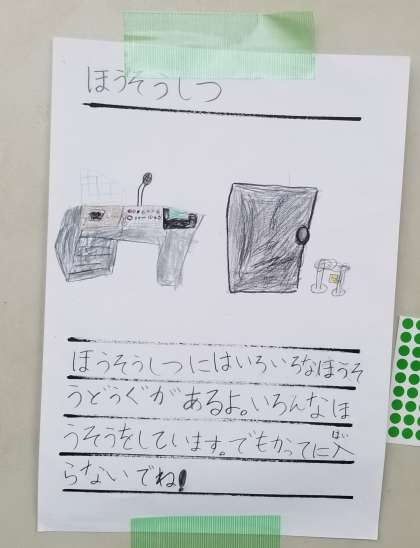 ほうそうしつ
ほうそうしつにはいろいろなほうそ
うどうぐがあるよ。いろんなほ
うそうをしています。でもかってに入
らないでね!